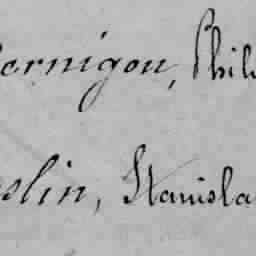 ernigon, Phil
slin, Stanisla